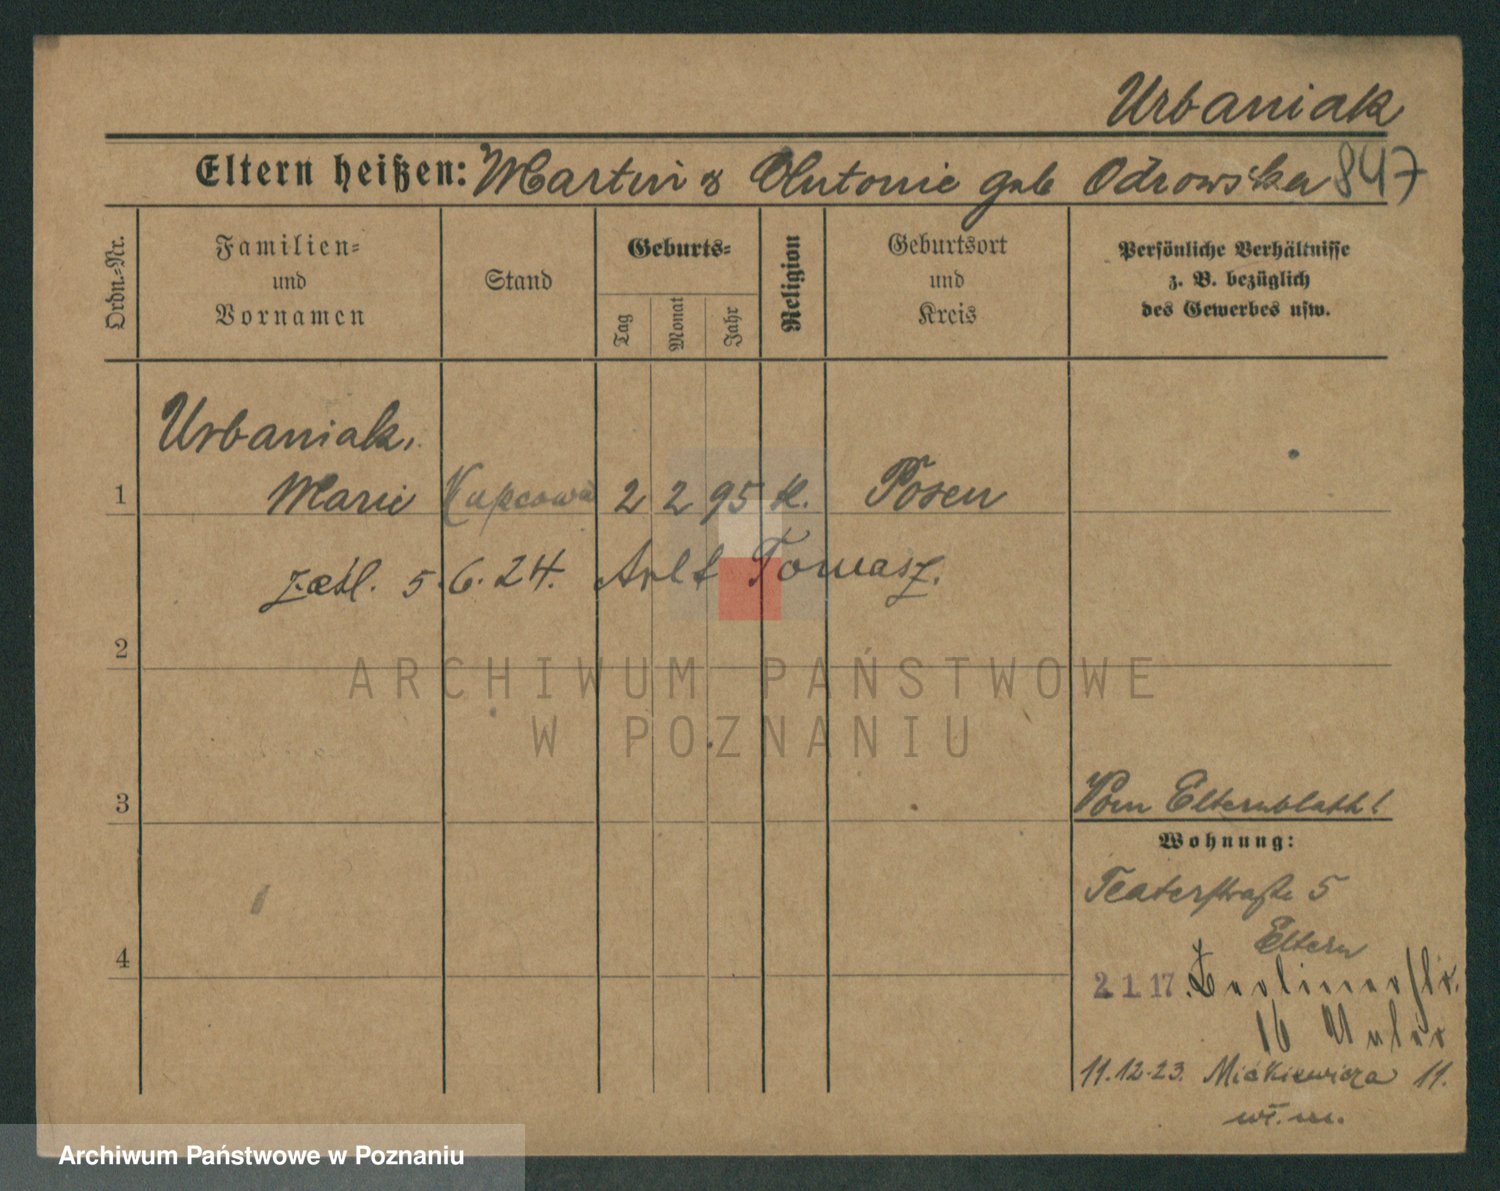 Urbaniak
Eltern heißen: Martin & Antonie geb Odrowska 847
Ordn.-Nr.
Familien-
und
Vornamen
Stand
Geburts-
Tag
Monat
Jahr
Religion
Geburtsort
und
Kreis
Persönliche Verhältnisse
z. B. bezüglich
des Gewerbes usw.
Urbaniak,
1 Marie Kupcowa 2 2 95 k. Posen
zaśl. 5.6.24. Arlt Tomasz.
2
ARCHIWUM PAŃSTWOWE
W POZNANIU
3
Vom Elternblatt!
Wohnung:
Teaterstraße 5
Eltern
4
2.1.17. Berlinerstr.
16
11.12.23. Mickiewicza 11.
wł. m.
Archiwum Państwowe w Poznaniu